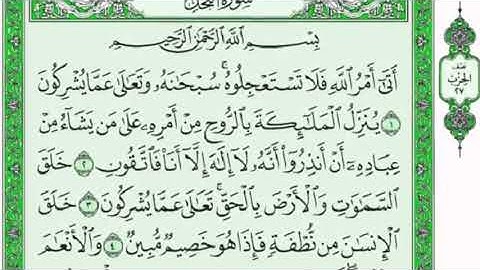 سورة النحل
بِسْمِ اللَّهِ الرَّحْمَٰنِ الرَّحِيمِ
أَتَىٰ أَمْرُ اللَّهِ فَلَا تَسْتَعْجِلُوهُ ۚ سُبْحَانَهُ وَتَعَالَىٰ عَمَّا يُشْرِكُونَ
١ يُنَزِّلُ الْمَلَائِكَةَ بِالرُّوحِ مِنْ أَمْرِهِ عَلَىٰ مَن يَشَاءُ مِنْ
عِبَادِهِ أَنْ أَنذِرُوا أَنَّهُ لَا إِلَٰهَ إِلَّا أَنَا فَاتَّقُونِ ٢ خَلَقَ
السَّمَاوَاتِ وَالْأَرْضَ بِالْحَقِّ ۚ تَعَالَىٰ عَمَّا يُشْرِكُونَ ٣ خَلَقَ
الْإِنسَانَ مِن نُّطْفَةٍ فَإِذَا هُوَ خَصِيمٌ مُّبِينٌ ٤ وَالْأَنْعَامَ
نصف
الحزب
٢٧